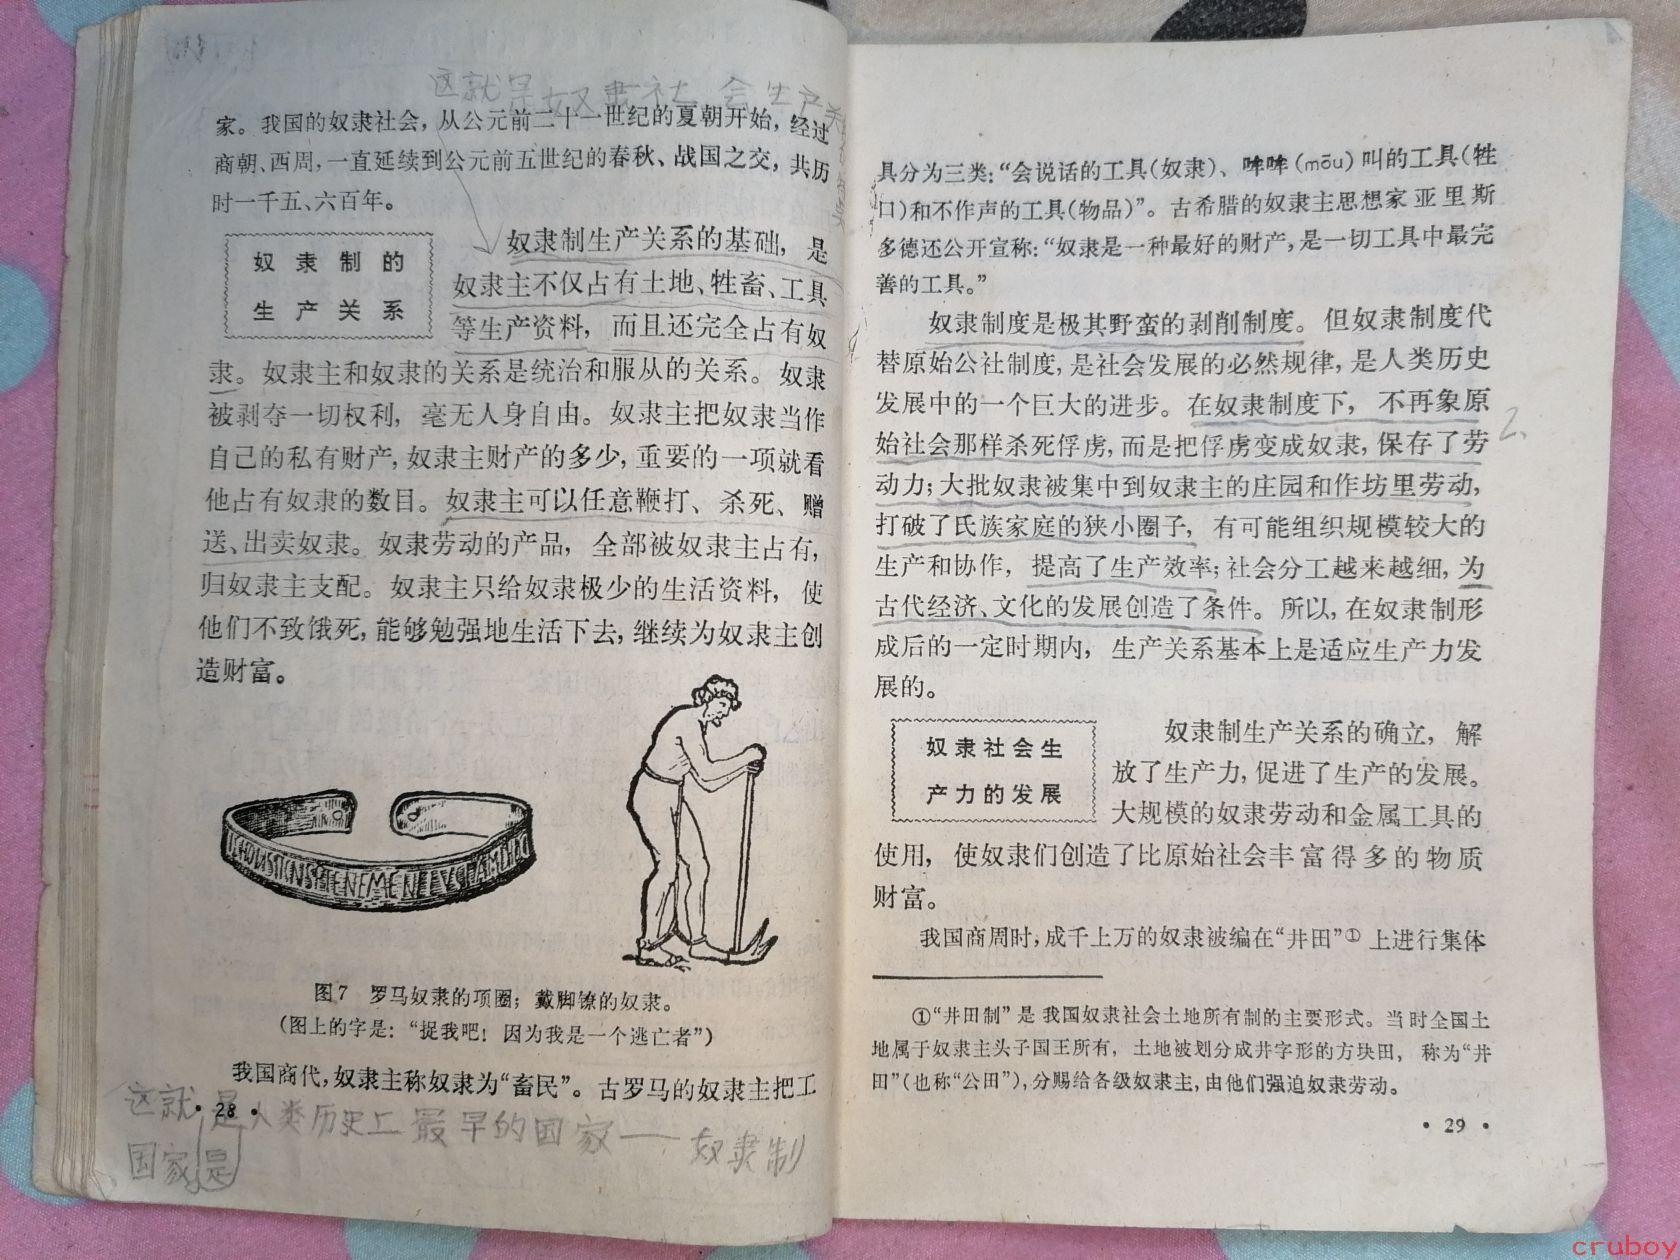 这就是奴隶社会生产关
家。我国的奴隶社会，从公元前二十一世纪的夏朝开始，经过
商朝、西周，一直延续到公元前五世纪的春秋、战国之交，共历
时一千五、六百年。
奴隶制的
生产关系
奴隶制生产关系的基础，是
奴隶主不仅占有土地、牲畜、工具
等生产资料，而且还完全占有奴
隶。奴隶主和奴隶的关系是统治和服从的关系。奴隶
被剥夺一切权利，毫无人身自由。奴隶主把奴隶当作
自己的私有财产，奴隶主财产的多少，重要的一项就看
他占有奴隶的数目。奴隶主可以任意鞭打、杀死、赠
送、出卖奴隶。奴隶劳动的产品，全部被奴隶主占有，
归奴隶主支配。奴隶主只给奴隶极少的生活资料，使
他们不致饿死，能够勉强地生活下去，继续为奴隶主创
造财富。
图7 罗马奴隶的项圈；戴脚镣的奴隶。
（图上的字是：“捉我吧！因为我是一个逃亡者”）
我国商代，奴隶主称奴隶为“畜民”。古罗马的奴隶主把工
• 28 •
这就是人类历史上最早的国家——奴隶制
国家是
具分为三类：“会说话的工具（奴隶）、哞哞（mōu）叫的工具（牲
口）和不作声的工具（物品）”。古希腊的奴隶主思想家亚里斯
多德还公开宣称：“奴隶是一种最好的财产，是一切工具中最完
善的工具。”
奴隶制度是极其野蛮的剥削制度。但奴隶制度代
替原始公社制度，是社会发展的必然规律，是人类历史
发展中的一个巨大的进步。在奴隶制度下，不再象原
始社会那样杀死俘虏，而是把俘虏变成奴隶，保存了劳
动力；大批奴隶被集中到奴隶主的庄园和作坊里劳动，
打破了氏族家庭的狭小圈子，有可能组织规模较大的
生产和协作，提高了生产效率；社会分工越来越细，为
古代经济、文化的发展创造了条件。所以，在奴隶制形
成后的一定时期内，生产关系基本上是适应生产力发
展的。
2.
奴隶社会生
产力的发展
奴隶制生产关系的确立，解
放了生产力，促进了生产的发展。
大规模的奴隶劳动和金属工具的
使用，使奴隶们创造了比原始社会丰富得多的物质
财富。
我国商周时，成千上万的奴隶被编在“井田”①上进行集体
①“井田制”是我国奴隶社会土地所有制的主要形式。当时全国土
地属于奴隶主头子国王所有，土地被划分成井字形的方块田，称为“井
田”（也称“公田”），分赐给各级奴隶主，由他们强迫奴隶劳动。
• 29 •
cruboy